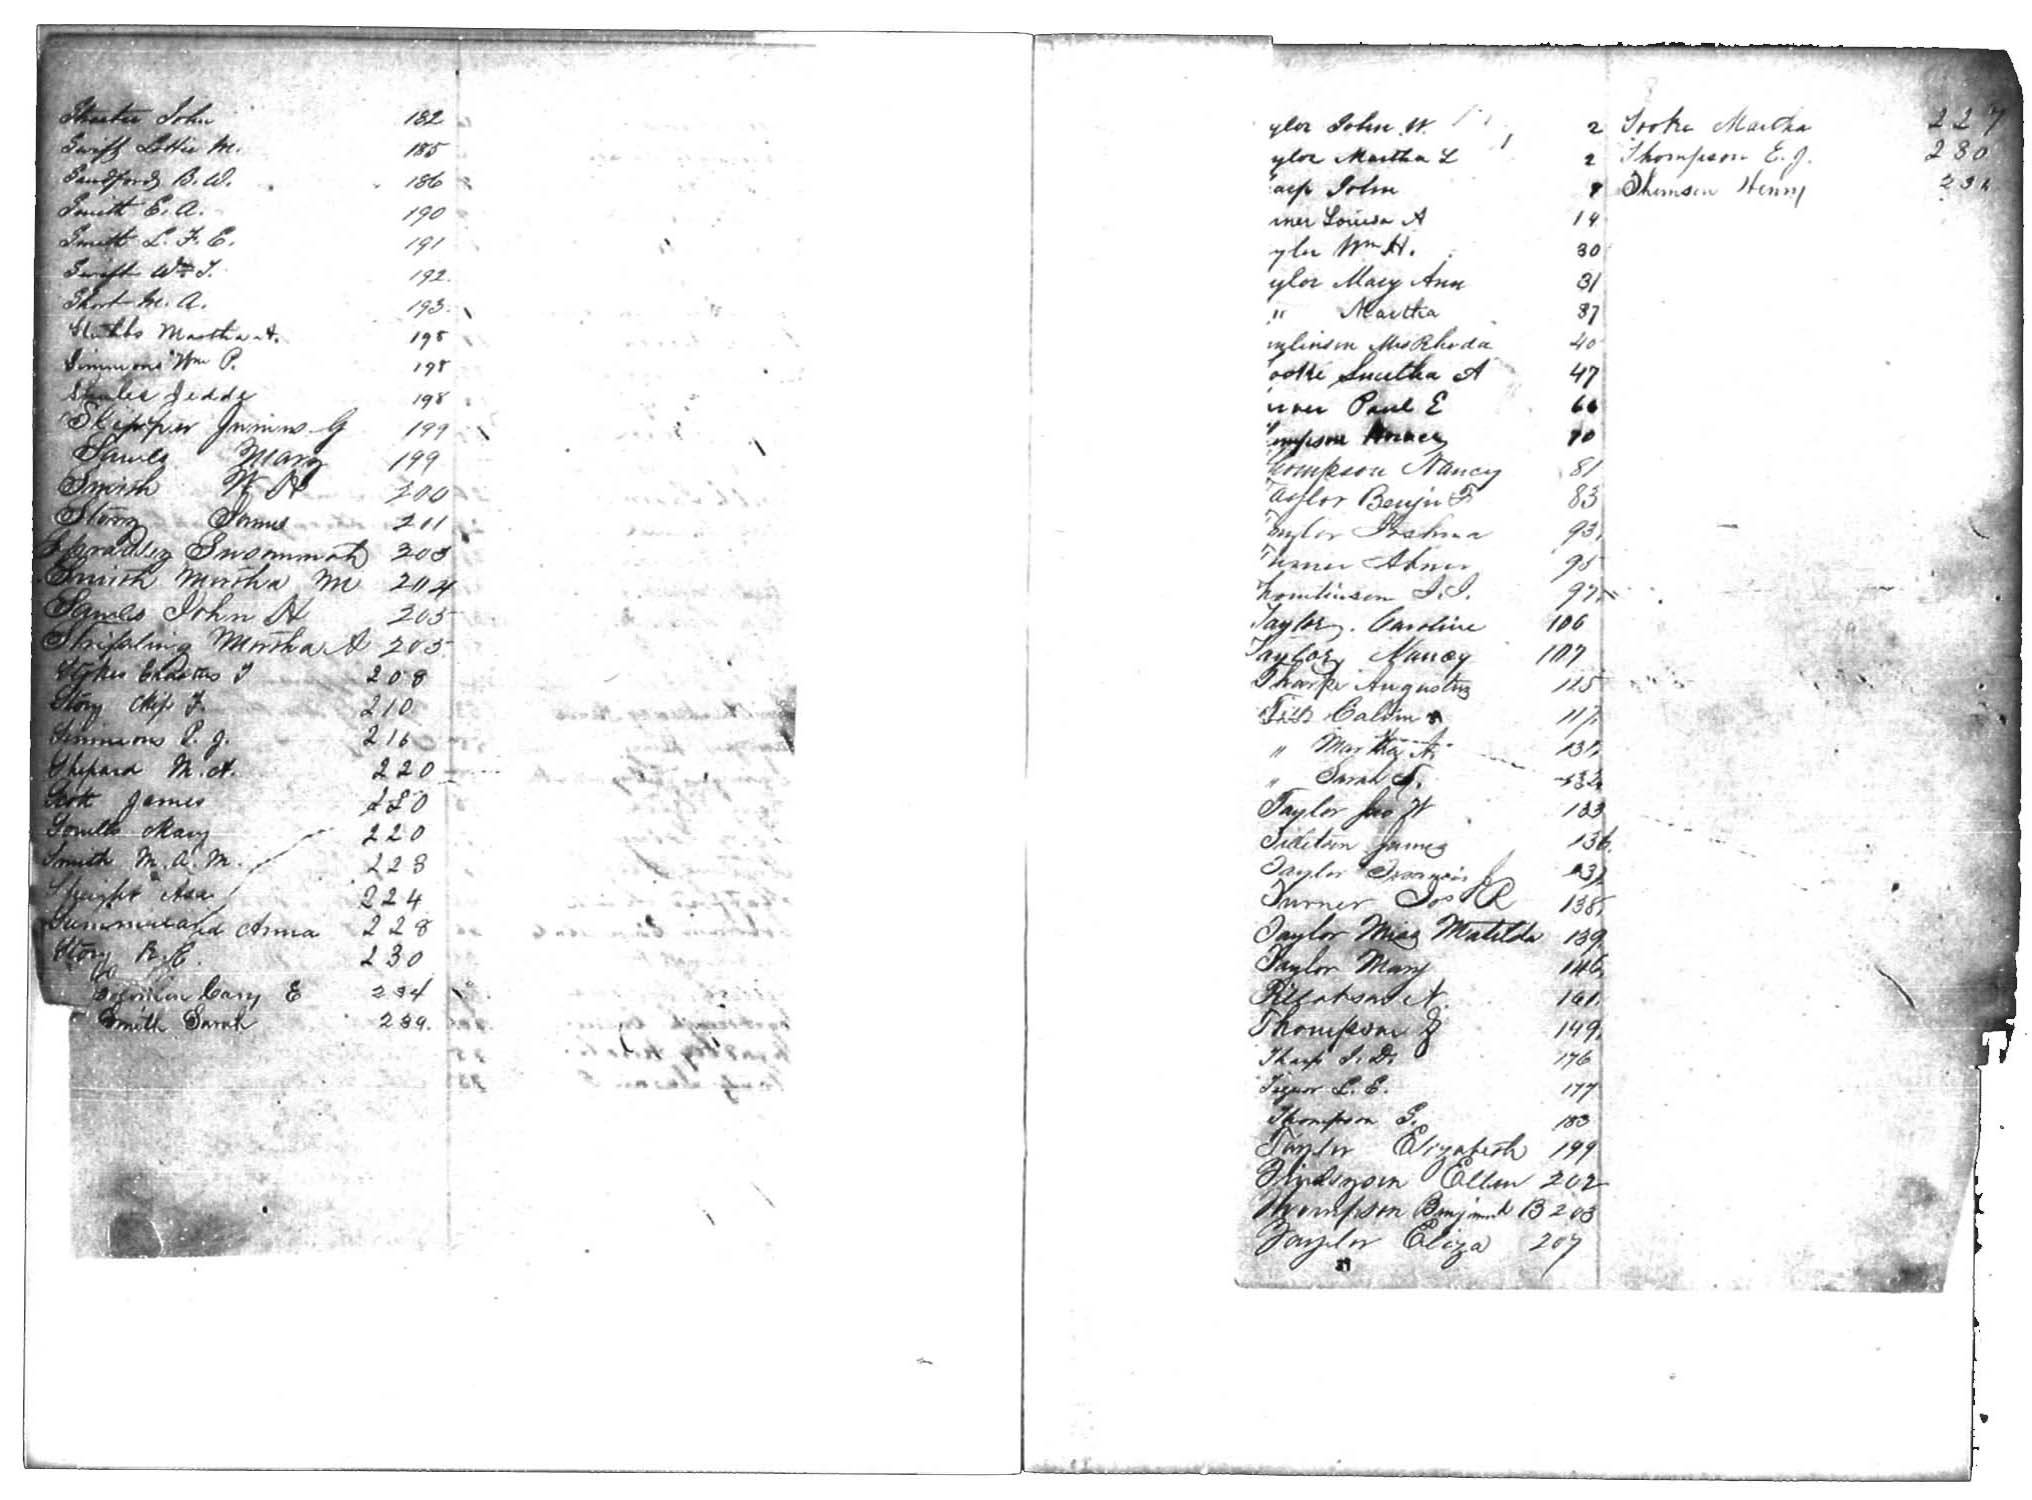 John 182
Swift Lottie M. 185
Sandford B. W. 186
Smith E. A. 190
Smith L. F. E. 191
Swift Wm T. 192
Short M. A. 193
Stubbs Martha A. 198
Simmons Wm P. 198
198
Skipper Junius G 199
Sawls Mary 199
Smith W H 200
Story James 201
Spradley Susannah 203
Smith Martha M 204
Sawls John H 205
Stripling Martha A 205
Stokes Erastus T 208
Story F. 210
Simmons P. J. 216
Shepard M. A. 220
Scott James 220
Mary 220
Smith M. A. M. 223
Speight Asa 224
Anna 228
Story R. E. 230
Solomon Cary E 234
Smith Sarah 239.
ylor John W. 2
ylor Martha L 2
arp John 8
rner Louisa A 14
yler Wm H. 30
ylor Mary Ann 31
" Martha 37
mlinson Mrs Rhoda 40
ooke Lucetha A 47
Paul E 66
ompson 70
hompson Nancy 81
Taylor Benjn F 83
Taylor Joshua 93.
Turner Abner 95
Tomlinson J. J. 97.
Taylor, Caroline 106
Taylor, Nancy 107
Tharpe Augustus 115
Calvin 117.
" Martha A. 131.
" Sarah 132.
Taylor Jno W 133
James 136.
Taylor Francis J 137.
Turner Jos R 138.
Taylor Miss Matilda 139.
Taylor Mary 146.
N. 161.
Thompson 149.
Tharp J. D. 176
L. E. 177
Thompson G. 183
Taylor Elizabeth 199
Ellen 202
Thompson Benjamin B 203
Taylor Eliza 207
Tooke Martha 227
Thompson E. J. 230
Thomson Henry